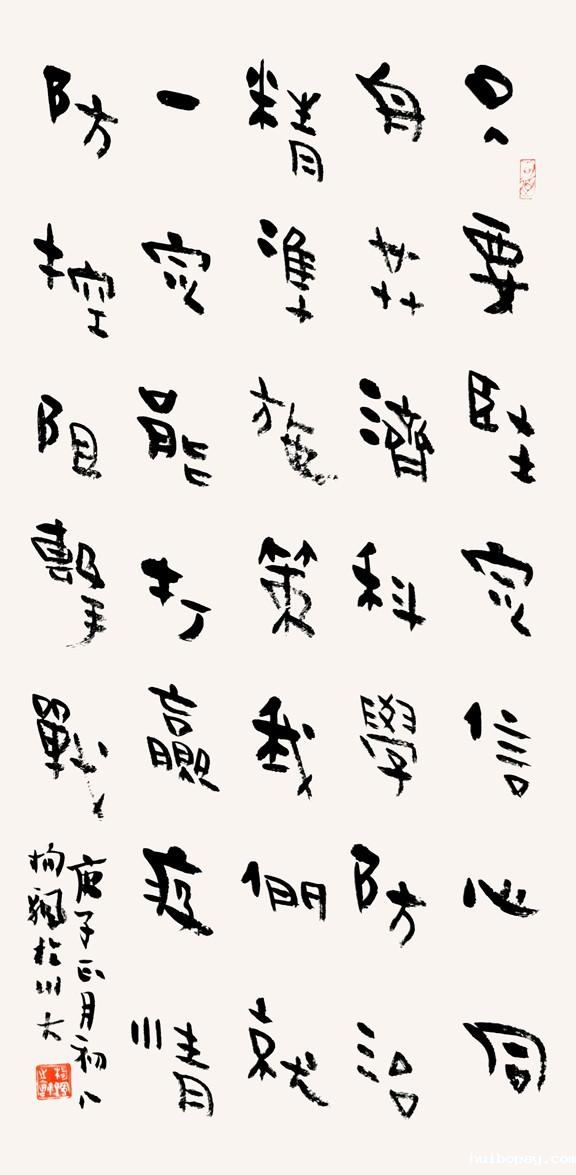 只要堅定信心同
舟共濟科學防治
精準施策我們就
一定能打贏疫情
防控阻擊戰
庚子正月初八
huibopay.com